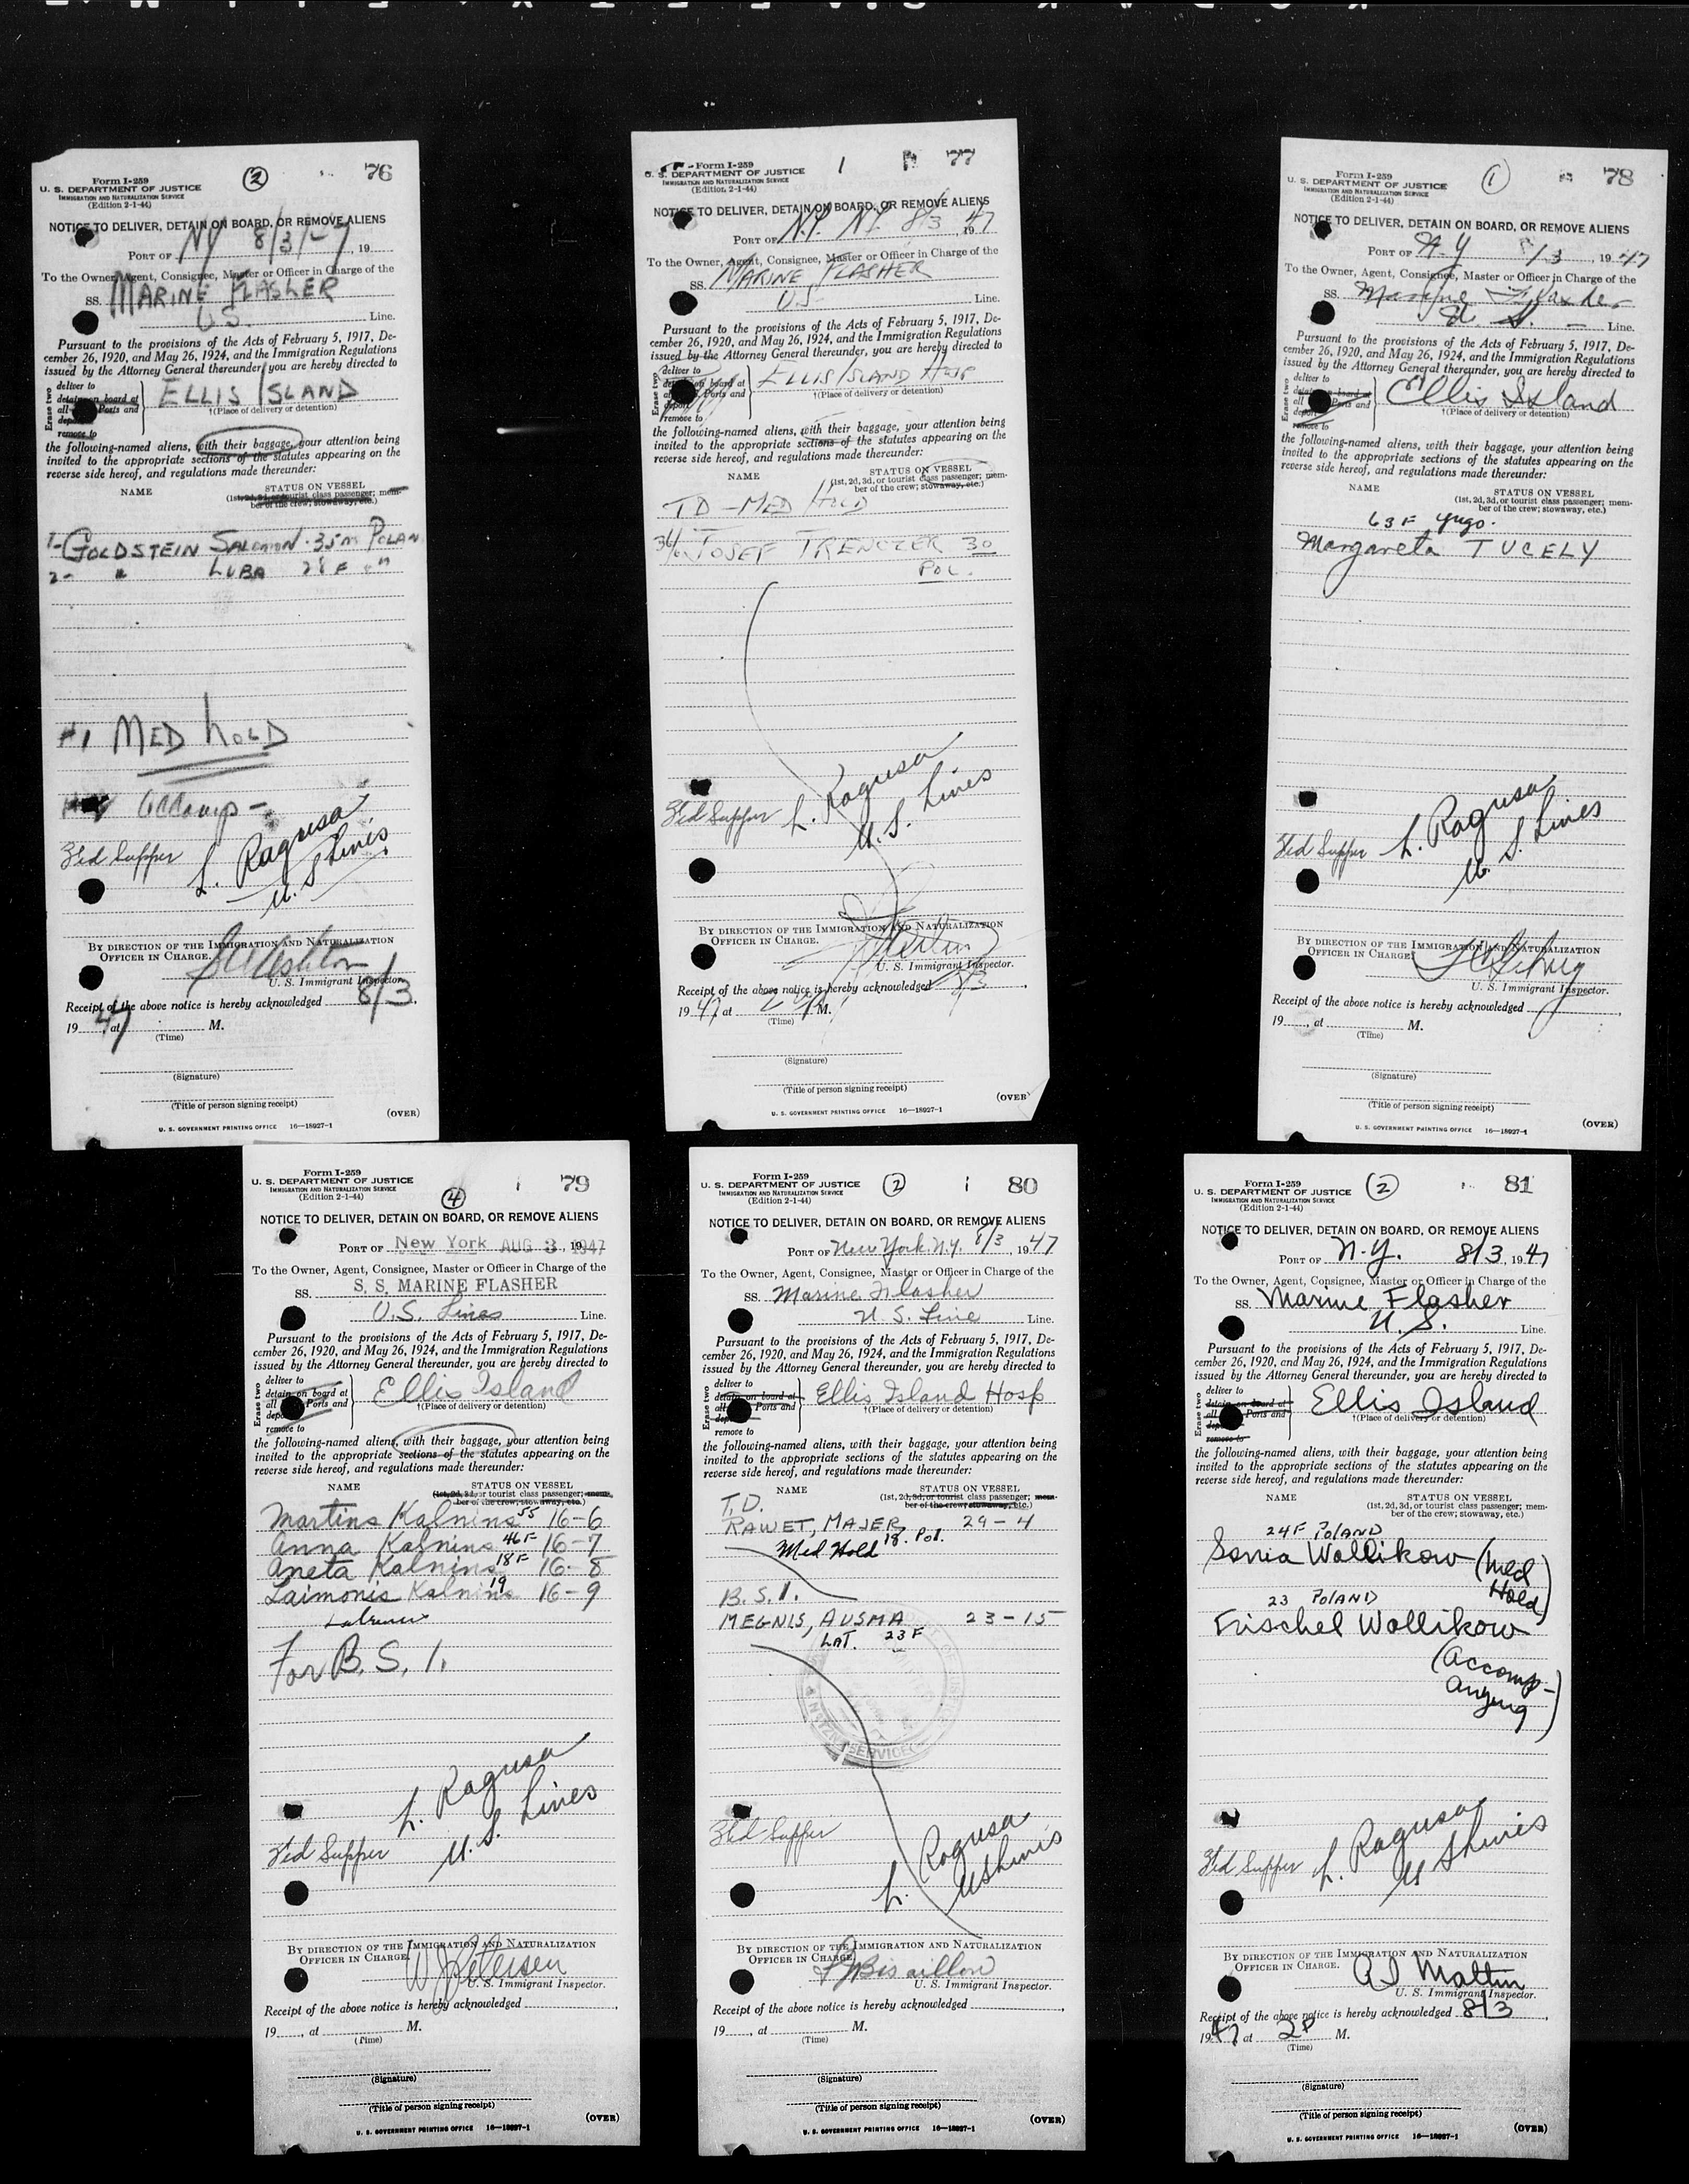 Form I-259
U. S. DEPARTMENT OF JUSTICE
IMMIGRATION AND NATURALIZATION SERVICE
(Edition 2-1-44)
2
76
NOTICE TO DELIVER, DETAIN ON BOARD, OR REMOVE ALIENS
PORT OF NY 8/3/47, 19
To the Owner, Agent, Consignee, Master or Officer in Charge of the
SS. MARINE FLASHER
U.S. Line.
Pursuant to the provisions of the Acts of February 5, 1917, De-
cember 26, 1920, and May 26, 1924, and the Immigration Regulations
issued by the Attorney General thereunder, you are hereby directed to
Erase two
deliver to
detain on board at
all Ports and
remove to
ELLIS ISLAND
†(Place of delivery or detention)
the following-named aliens, with their baggage, your attention being
invited to the appropriate sections of the statutes appearing on the
reverse side hereof, and regulations made thereunder:
NAME STATUS ON VESSEL
(1st, 2d, 3d, or tourist class passenger; mem-
ber of the crew; stowaway, etc.)
1- GOLDSTEIN SALOMON 35 m POLAN
2- " LUBA 28 F "
#1 MED HOLD
accomp -
Fed Supper L. Ragusa
U. S Lines
BY DIRECTION OF THE IMMIGRATION AND NATURALIZATION
OFFICER IN CHARGE.
U. S. Immigrant Inspector.
Receipt of the above notice is hereby acknowledged 8/3,
19 47, at M.
(Time)
(Signature)
(Title of person signing receipt)
(OVER)
U. S. GOVERNMENT PRINTING OFFICE 16—18927-1
Form I-259
U. S. DEPARTMENT OF JUSTICE
IMMIGRATION AND NATURALIZATION SERVICE
(Edition 2-1-44)
1
77
NOTICE TO DELIVER, DETAIN ON BOARD, OR REMOVE ALIENS
PORT OF N.Y. N.Y. 8/3 1947
To the Owner, Agent, Consignee, Master or Officer in Charge of the
SS. MARINE FLASHER
U.S Line.
Pursuant to the provisions of the Acts of February 5, 1917, De-
cember 26, 1920, and May 26, 1924, and the Immigration Regulations
issued by the Attorney General thereunder, you are hereby directed to
Erase two
deliver to
detain on board at
all Ports and
remove to
ELLIS ISLAND HOSP
†(Place of delivery or detention)
the following-named aliens, with their baggage, your attention being
invited to the appropriate sections of the statutes appearing on the
reverse side hereof, and regulations made thereunder:
NAME STATUS ON VESSEL
(1st, 2d, 3d, or tourist class passenger; mem-
ber of the crew; stowaway, etc.)
TD - MED HOLD
JOSEF TRENCZER 30
POL.
Fed Supper L. Ragusa
U. S. Lines
BY DIRECTION OF THE IMMIGRATION AND NATURALIZATION
OFFICER IN CHARGE.
U. S. Immigrant Inspector.
Receipt of the above notice is hereby acknowledged 8/3,
19 47, at M.
(Time)
(Signature)
(Title of person signing receipt)
(OVER)
U. S. GOVERNMENT PRINTING OFFICE 16—18927-1
Form I-259
U. S. DEPARTMENT OF JUSTICE
IMMIGRATION AND NATURALIZATION SERVICE
(Edition 2-1-44)
1
78
NOTICE TO DELIVER, DETAIN ON BOARD, OR REMOVE ALIENS
PORT OF N Y 8/3, 19 47
To the Owner, Agent, Consignee, Master or Officer in Charge of the
SS. Marine Flasher
U. S. - Line.
Pursuant to the provisions of the Acts of February 5, 1917, De-
cember 26, 1920, and May 26, 1924, and the Immigration Regulations
issued by the Attorney General thereunder, you are hereby directed to
Erase two
deliver to
detain on board at
all Ports and
remove to
Ellis Island
†(Place of delivery or detention)
the following-named aliens, with their baggage, your attention being
invited to the appropriate sections of the statutes appearing on the
reverse side hereof, and regulations made thereunder:
NAME STATUS ON VESSEL
(1st, 2d, 3d, or tourist class passenger; mem-
ber of the crew; stowaway, etc.)
63 F Yugo.
Margareta TUCELY
Fed Supper L. Ragusa
U. S. Lines
BY DIRECTION OF THE IMMIGRATION AND NATURALIZATION
OFFICER IN CHARGE.
U. S. Immigrant Inspector.
Receipt of the above notice is hereby acknowledged
19, at M.
(Time)
(Signature)
(Title of person signing receipt)
(OVER)
U. S. GOVERNMENT PRINTING OFFICE 16—18927-1
Form I-259
U. S. DEPARTMENT OF JUSTICE
IMMIGRATION AND NATURALIZATION SERVICE
(Edition 2-1-44)
4
79
NOTICE TO DELIVER, DETAIN ON BOARD, OR REMOVE ALIENS
PORT OF New York AUG 3, 1947
To the Owner, Agent, Consignee, Master or Officer in Charge of the
SS. S. S. MARINE FLASHER
U.S. Lines Line.
Pursuant to the provisions of the Acts of February 5, 1917, De-
cember 26, 1920, and May 26, 1924, and the Immigration Regulations
issued by the Attorney General thereunder, you are hereby directed to
Erase two
deliver to
detain on board at
all Ports and
remove to
Ellis Island
†(Place of delivery or detention)
the following-named aliens, with their baggage, your attention being
invited to the appropriate sections of the statutes appearing on the
reverse side hereof, and regulations made thereunder:
NAME STATUS ON VESSEL
(1st, 2d, 3d, or tourist class passenger; mem-
ber of the crew, stowaway, etc.)
Martins Kalnins 55 16-6
Anna Kalnins 46 F 16-7
Aneta Kalnins 18 F 16-8
Laimonis Kalnins 19 16-9
For B. S. I.
L. Ragusa
Fed Supper U. S. Lines
BY DIRECTION OF THE IMMIGRATION AND NATURALIZATION
OFFICER IN CHARGE.
W J Petersen
U. S. Immigrant Inspector.
Receipt of the above notice is hereby acknowledged
19, at M.
(Time)
(Signature)
(Title of person signing receipt)
(OVER)
U. S. GOVERNMENT PRINTING OFFICE 16—18927-1
Form I-259
U. S. DEPARTMENT OF JUSTICE
IMMIGRATION AND NATURALIZATION SERVICE
(Edition 2-1-44)
2
80
NOTICE TO DELIVER, DETAIN ON BOARD, OR REMOVE ALIENS
PORT OF New York N.Y. 8/3, 19 47
To the Owner, Agent, Consignee, Master or Officer in Charge of the
SS. Marine Flasher
U. S. Line Line.
Pursuant to the provisions of the Acts of February 5, 1917, De-
cember 26, 1920, and May 26, 1924, and the Immigration Regulations
issued by the Attorney General thereunder, you are hereby directed to
Erase two
deliver to
detain on board at
all Ports and
remove to
Ellis Island Hosp
†(Place of delivery or detention)
the following-named aliens, with their baggage, your attention being
invited to the appropriate sections of the statutes appearing on the
reverse side hereof, and regulations made thereunder:
NAME STATUS ON VESSEL
(1st, 2d, 3d, or tourist class passenger; mem-
ber of the crew; stowaway, etc.)
T.D.
RAWET, MAJER 29-4
Med Hold 18. Pol.
B.S.I.
MEGNIS, AUSMA 23-15
LAT. 23 F
SERVICE
Fed Supper
L. Ragusa
US Lines
BY DIRECTION OF THE IMMIGRATION AND NATURALIZATION
OFFICER IN CHARGE.
Bisaillon
U. S. Immigrant Inspector.
Receipt of the above notice is hereby acknowledged
19, at M.
(Time)
(Signature)
(Title of person signing receipt)
(OVER)
U. S. GOVERNMENT PRINTING OFFICE 16—18927-1
Form I-259
U. S. DEPARTMENT OF JUSTICE
IMMIGRATION AND NATURALIZATION SERVICE
(Edition 2-1-44)
2
81
NOTICE TO DELIVER, DETAIN ON BOARD, OR REMOVE ALIENS
PORT OF N.Y. 8/3, 1947
To the Owner, Agent, Consignee, Master or Officer in Charge of the
SS. Marine Flasher
U. S. Line.
Pursuant to the provisions of the Acts of February 5, 1917, De-
cember 26, 1920, and May 26, 1924, and the Immigration Regulations
issued by the Attorney General thereunder, you are hereby directed to
Erase two
deliver to
detain on board at
all Ports and
remove to
Ellis Island
†(Place of delivery or detention)
the following-named aliens, with their baggage, your attention being
invited to the appropriate sections of the statutes appearing on the
reverse side hereof, and regulations made thereunder:
NAME STATUS ON VESSEL
(1st, 2d, 3d, or tourist class passenger; mem-
ber of the crew; stowaway, etc.)
24 F POLAND
Sonia Wollikow (Med
Hold)
23 POLAND
Frischel Wollikow
(accomp-
anying)
Fed Supper L. Ragusa
U S Lines
BY DIRECTION OF THE IMMIGRATION AND NATURALIZATION
OFFICER IN CHARGE.
U. S. Immigrant Inspector.
Receipt of the above notice is hereby acknowledged 8/3,
1947, at 2P M.
(Time)
(Signature)
(Title of person signing receipt)
(OVER)
U. S. GOVERNMENT PRINTING OFFICE 16—18927-1